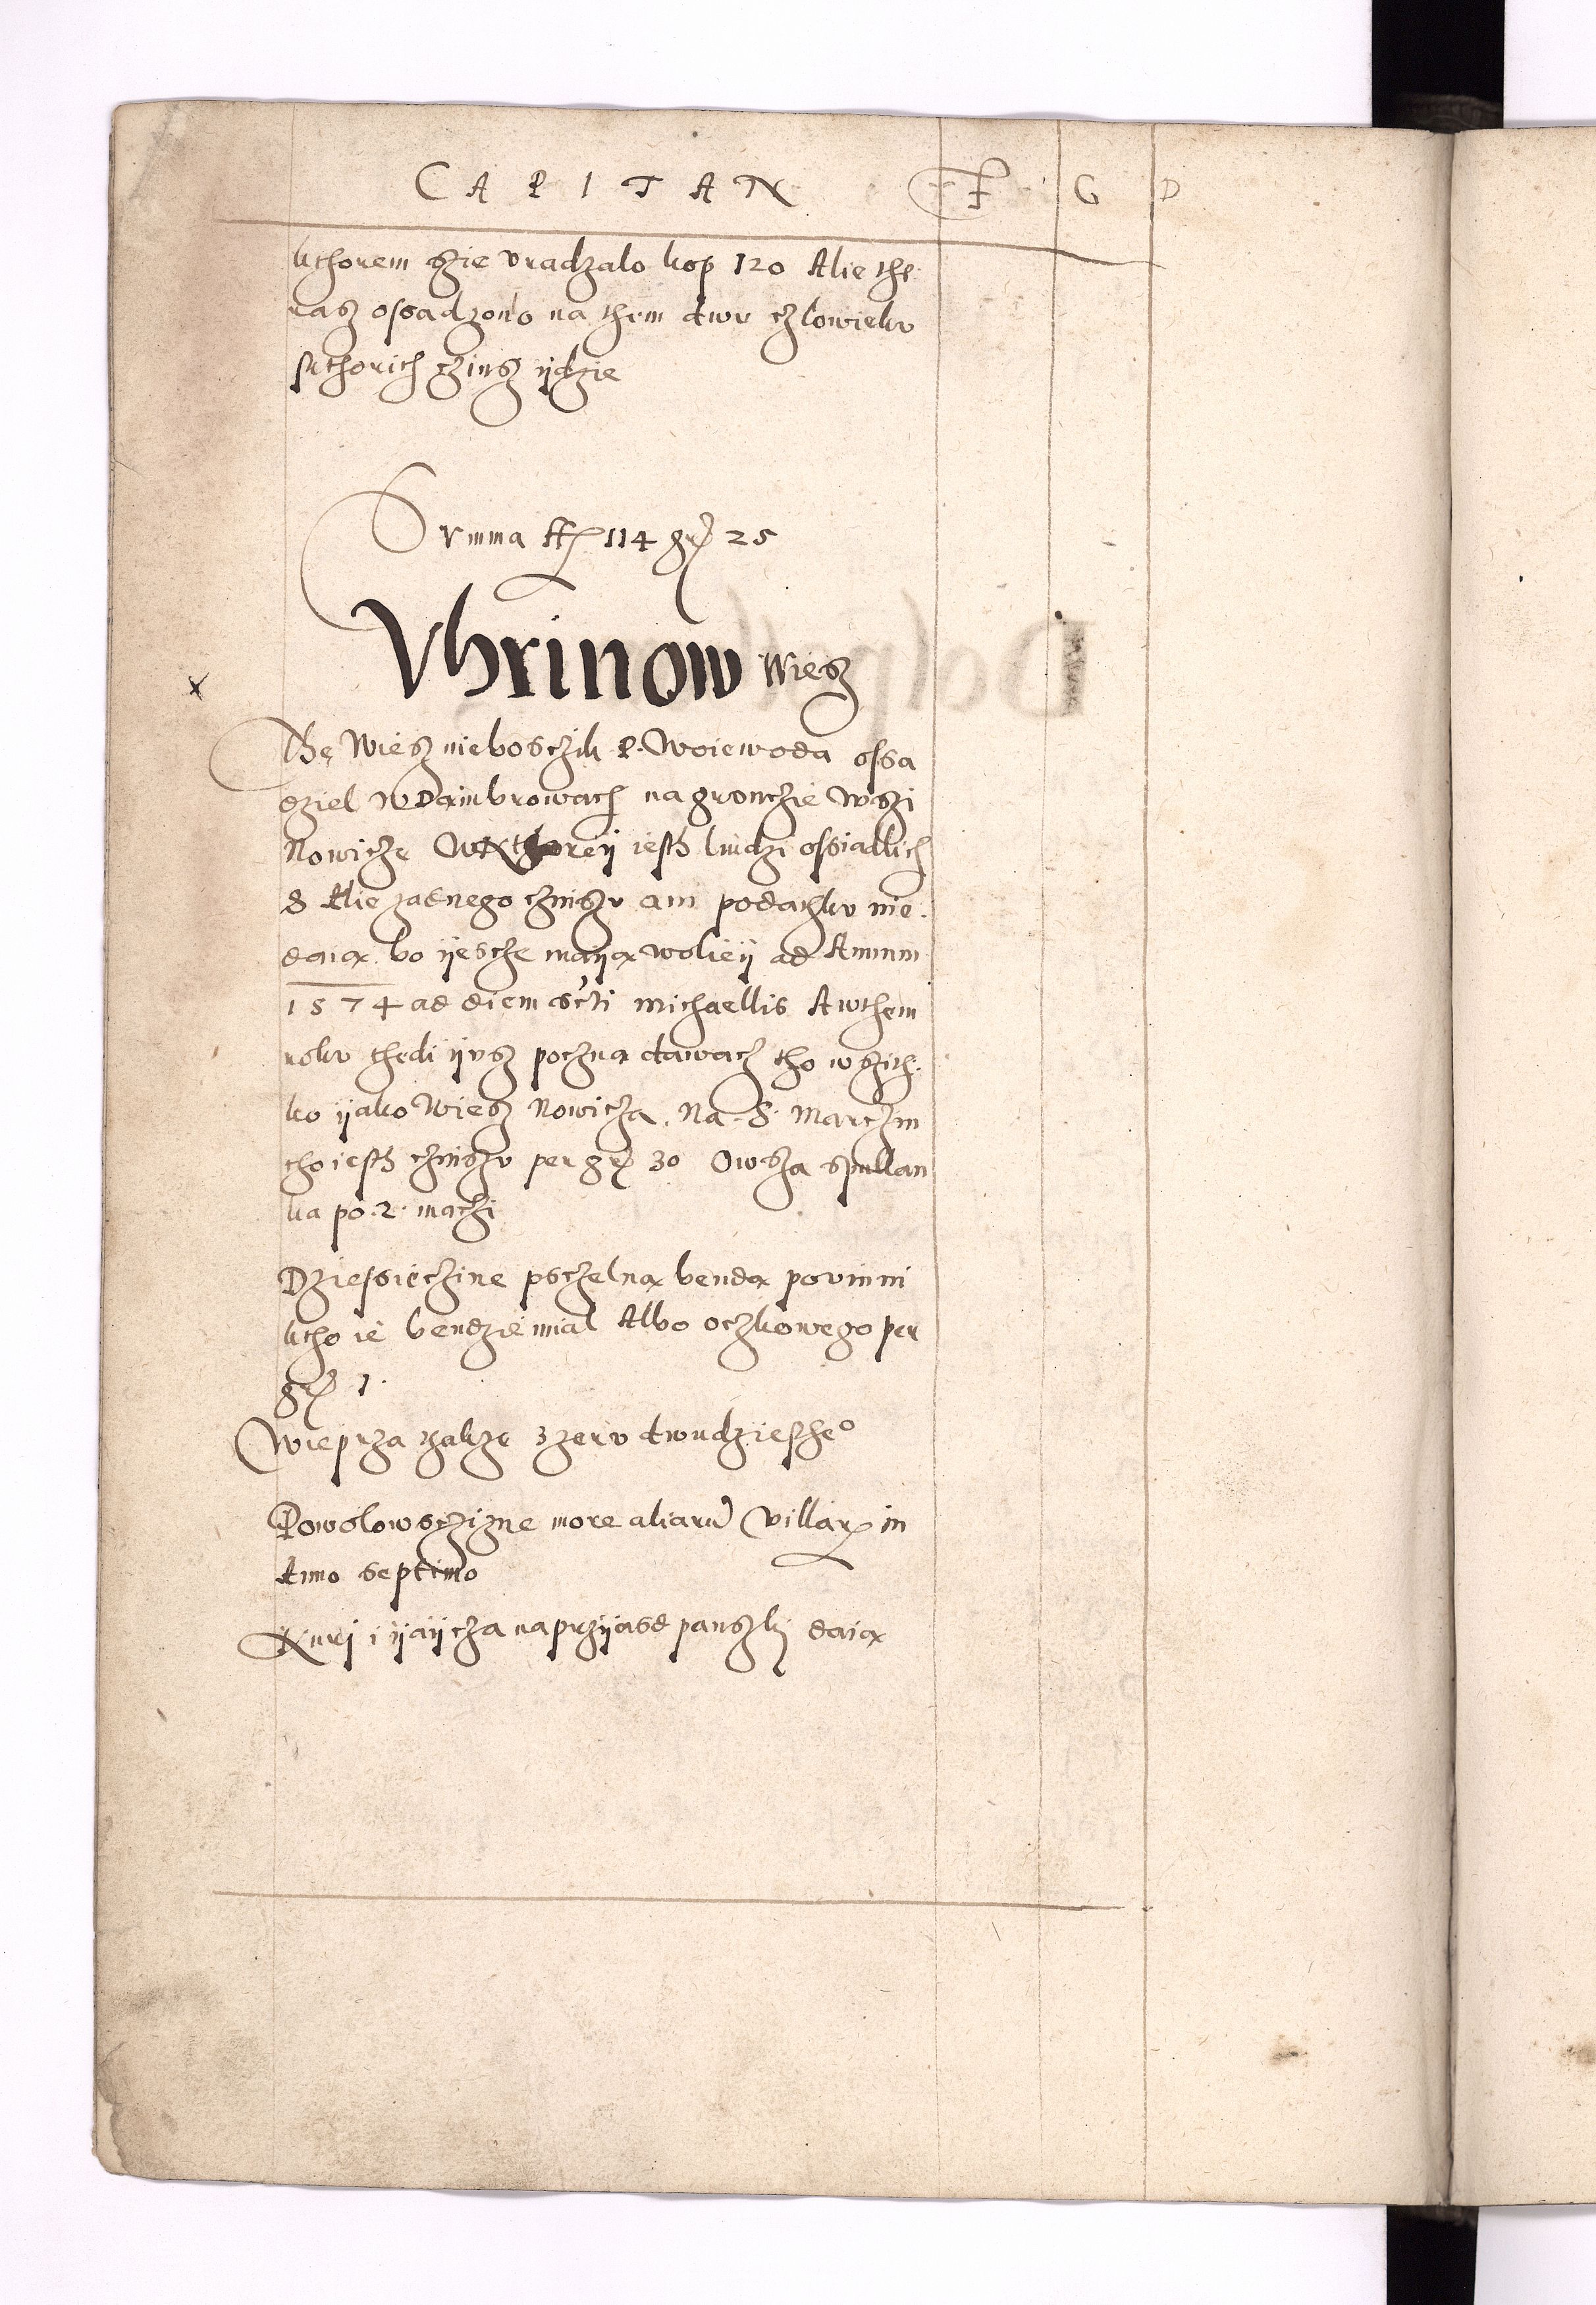 CAPITAN F G D
kthorem szie vradzalo kop 120 Alie the
rasz ossadzono na them dwu czlowieku
s kthorich czinsz ijdzie
Summa ff 114 gr 25
Vhrinow Wiesz
x
Thę Wiesz nieboszczik P. Woiewoda ossa
dziel W Dambrowach na gronczie wszi
Nowicze W Kthoreij iesth ludzi ossiadlich
8 Alie zadnego czinszu ani podathku nie
daia bo ijescze maija wolieij ad Annum
1574 ad diem scti Michaellis A w them
roku thedi ijusz poczna dawacz tho wszith
ko ijako Wiesz Nowicza. Na S. Marczin
tho iesth czinszu per gr 30 Owsza spullan
ka po 2 maczi
Dziessieczine psczelna benda povinni
ktho ie bendzie mial Albo oczkowego per
gr 1
Wieprza takze z zeru dwudziesthego
Powolowsczizne more aliaru Villar in
Anno septimo
Kuri i ijaijcza na przijasd panszki daia